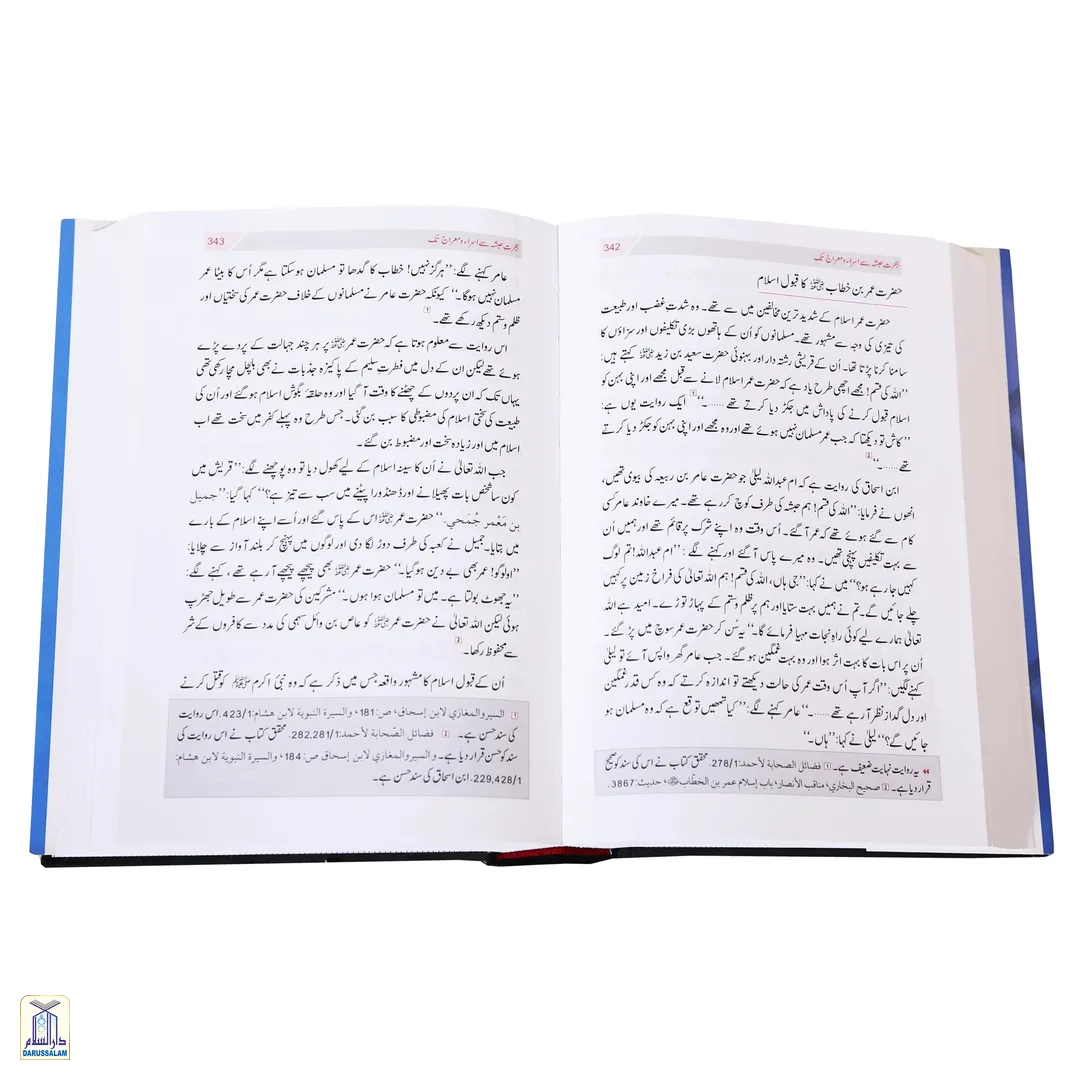 342
ہجرتِ حبشہ سے اسراء و معراج تک
حضرت عمر بن خطاب رضی اللہ عنہ کا قبول اسلام
حضرت عمر اسلام کے شدید ترین مخالفین میں سے تھے۔ وہ شدتِ غضب اور طبیعت
کی تیزی کی وجہ سے مشہور تھے۔ مسلمانوں کو اُن کے ہاتھوں بڑی تکلیفوں اور سزاؤں کا
سامنا کرنا پڑتا تھا۔ اُن کے قریشی رشتہ دار اور بہنوئی حضرت سعید بن زید رضی اللہ عنہ کہتے ہیں:
’’اللہ کی قسم! مجھے اچھی طرح یاد ہے کہ حضرت عمر اسلام لانے سے قبل مجھے اور اپنی بہن کو
اسلام قبول کرنے کی پاداش میں جکڑ دیا کرتے تھے ......۔‘‘ [1] ایک روایت یوں ہے:
’’کاش تو دیکھتا کہ جب عمر مسلمان نہیں ہوئے تھے اور وہ مجھے اور اپنی بہن کو جکڑ دیا کرتے
تھے ......۔‘‘ [2]
ابن اسحاق کی روایت ہے کہ ام عبداللہ لیلیٰ جو حضرت عامر بن ربیعہ کی بیوی تھیں،
انھوں نے فرمایا: ’’اللہ کی قسم! ہم حبشہ کی طرف کوچ کر رہے تھے۔ میرے خاوند عامر کسی
کام سے گئے ہوئے تھے کہ عمر آ گئے۔ اُس وقت وہ اپنے شرک پر قائم تھے اور ہمیں اُن
سے بہت تکلیفیں پہنچی تھیں۔ وہ میرے پاس آ گئے اور کہنے لگے: ’’ام عبداللہ! تم لوگ
کہیں جا رہے ہو؟‘‘ میں نے کہا: ’’جی ہاں، اللہ کی قسم! ہم اللہ تعالیٰ کی فراخ زمین پر کہیں
چلے جائیں گے۔ تم نے ہمیں بہت ستایا اور ہم پر ظلم و ستم کے پہاڑ توڑے۔ امید ہے اللہ
تعالیٰ ہمارے لیے کوئی راہِ نجات مہیا فرمائے گا۔‘‘ یہ سُن کر حضرت عمر سوچ میں پڑ گئے۔
اُن پر اس بات کا بہت اثر ہوا اور وہ بہت غمگین ہو گئے۔ جب عامر گھر واپس آئے تو لیلیٰ
کہنے لگیں: ’’اگر آپ اُس وقت عمر کی حالت دیکھتے تو اندازہ کرتے کہ وہ کس قدر غمگین
اور دل گداز نظر آ رہے تھے ......۔‘‘ عامر کہنے لگے: ’’کیا تمھیں توقع ہے کہ وہ مسلمان ہو
جائیں گے؟‘‘ لیلیٰ نے کہا: ’’ہاں۔‘‘
◄◄ یہ روایت نہایت ضعیف ہے۔ [1] فضائل الصحابة لأحمد: 278/1. محقق کتاب نے اس کی سند کو صحیح
قرار دیا ہے۔ [2] صحيح البخاري، مناقب الأنصار، باب إسلام عمر بن الخطاب رضی اللہ عنہ، حديث: 3867.
343
ہجرتِ حبشہ سے اسراء و معراج تک
عامر کہنے لگے: ’’ہرگز نہیں! خطاب کا گدھا تو مسلمان ہو سکتا ہے مگر اُس کا بیٹا عمر
مسلمان نہیں ہوگا۔‘‘ کیونکہ حضرت عامر نے مسلمانوں کے خلاف حضرت عمر کی سختیاں اور
ظلم و ستم دیکھ رکھے تھے۔ [1]
اس روایت سے معلوم ہوتا ہے کہ حضرت عمر رضی اللہ عنہ پر ہر چند جہالت کے پردے پڑے
ہوئے تھے لیکن ان کے دل میں فطرتِ سلیم کے پاکیزہ جذبات نے بھی ہلچل مچا رکھی تھی
یہاں تک کہ ان پردوں کے چھٹنے کا وقت آ گیا اور وہ حلقہ بگوشِ اسلام ہو گئے اور اُن کی
طبیعت کی سختی اسلام کی مضبوطی کا سبب بن گئی۔ جس طرح وہ پہلے کفر میں سخت تھے اب
اسلام میں اور زیادہ سخت اور مضبوط بن گئے۔
جب اللہ تعالیٰ نے اُن کا سینہ اسلام کے لیے کھول دیا تو وہ پوچھنے لگے: ’’قریش میں
کون سا شخص بات پھیلانے اور ڈھنڈورا پیٹنے میں سب سے تیز ہے؟‘‘ کہا گیا: ’’جميل
بن مَعْمر جُمَحي.‘‘ حضرت عمر رضی اللہ عنہ اس کے پاس گئے اور اُسے اپنے اسلام کے بارے
میں بتایا۔ جمیل نے کعبہ کی طرف دوڑ لگا دی اور لوگوں میں پہنچ کر بلند آواز سے چلایا:
’’اولوگو! عمر بھی بے دین ہوگیا۔‘‘ حضرت عمر رضی اللہ عنہ بھی پیچھے پیچھے آ رہے تھے، کہنے لگے:
’’یہ جھوٹ بولتا ہے۔ میں تو مسلمان ہوا ہوں۔‘‘ مشرکین کی حضرت عمر سے طویل جھڑپ
ہوئی لیکن اللہ تعالیٰ نے حضرت عمر رضی اللہ عنہ کو عاص بن وائل سہمی کی مدد سے کافروں کے شر
سے محفوظ رکھا۔ [2]
اُن کے قبول اسلام کا مشہور واقعہ جس میں ذکر ہے کہ وہ نبیِ اکرم ﷺ کو قتل کرنے
[1] السير والمغازي لابن إسحاق، ص: 181، والسيرة النبوية لابن هشام: 423/1. اس روایت
کی سند حسن ہے۔ [2] فضائل الصّحابة لأحمد: 282,281/1. محقق کتاب نے اس روایت کی
سند کو حسن قرار دیا ہے۔ والسير والمغازي لابن إسحاق ص: 184، والسيرة النبوية لابن هشام:
229,428/1. ابن اسحاق کی سند حسن ہے۔
دارالسلام
DARUSSALAM